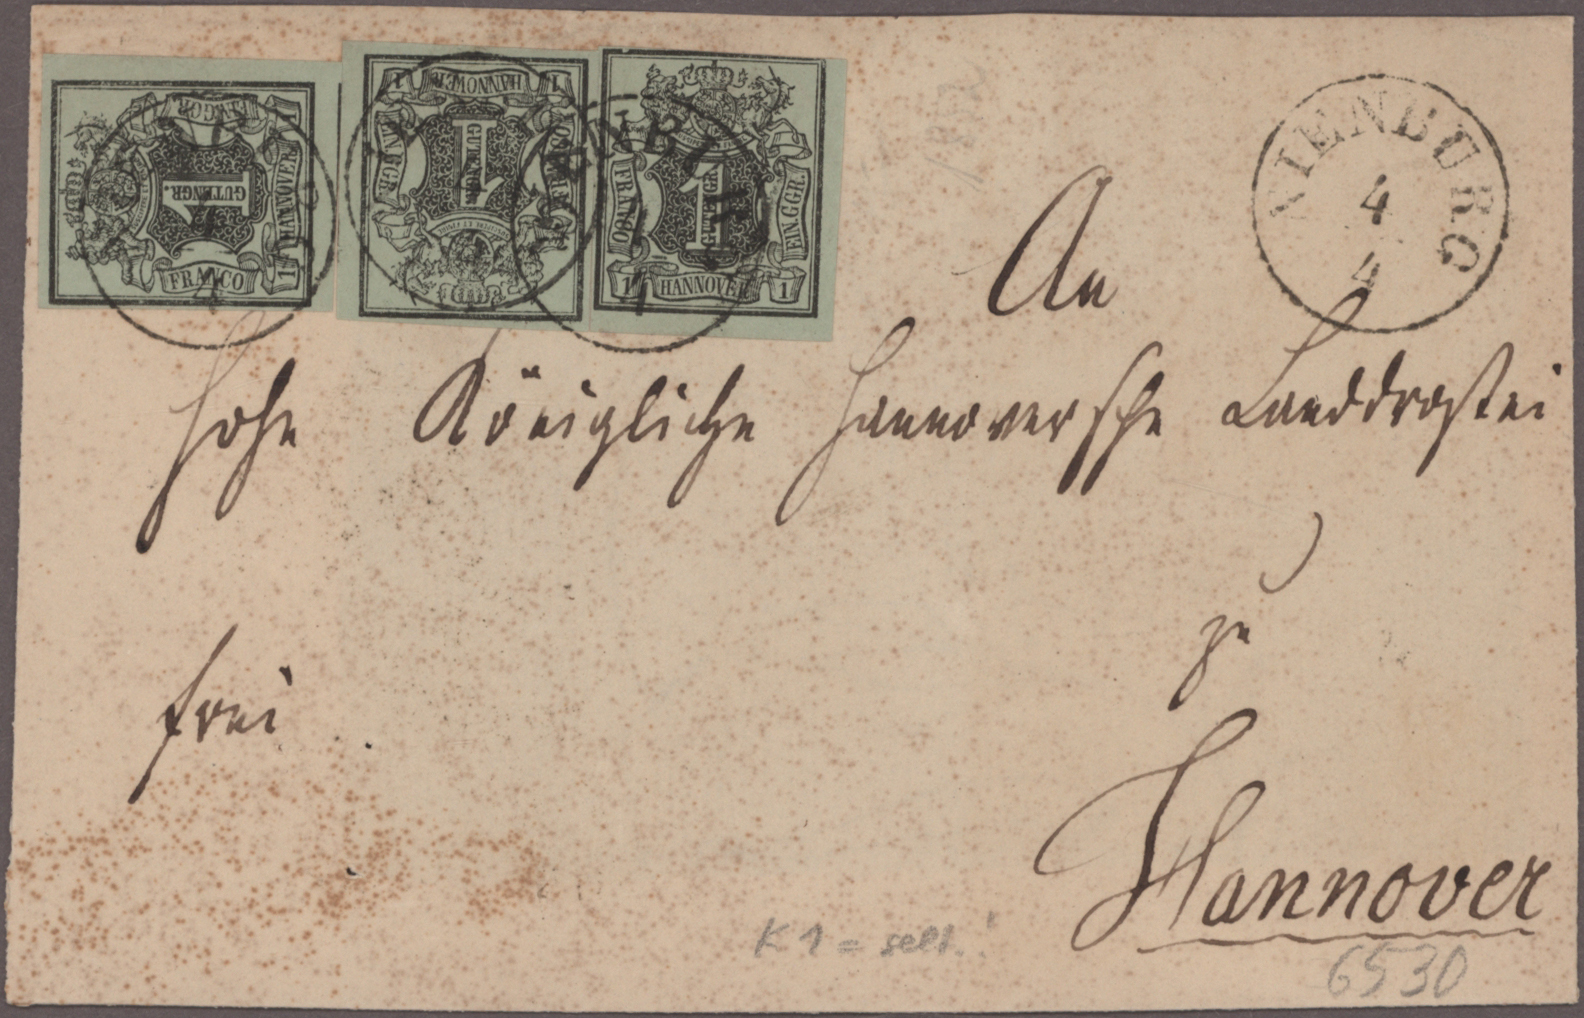 EIN.GGR.
1
GUTENGR.
HANNOVER
FRANCO
1
1
HANNOVER
1
1
GUTENGR.
EIN.GGR.
FRANCO
1
GUTENGR.
EIN.GGR.
1 HANNOVER 1
NIENBURG
4
4
NIENBURG
4
4
An
Hohe Königliche Hannoversche Landdrostei
zu
frei
Hannover
K1 = selt.!
6530